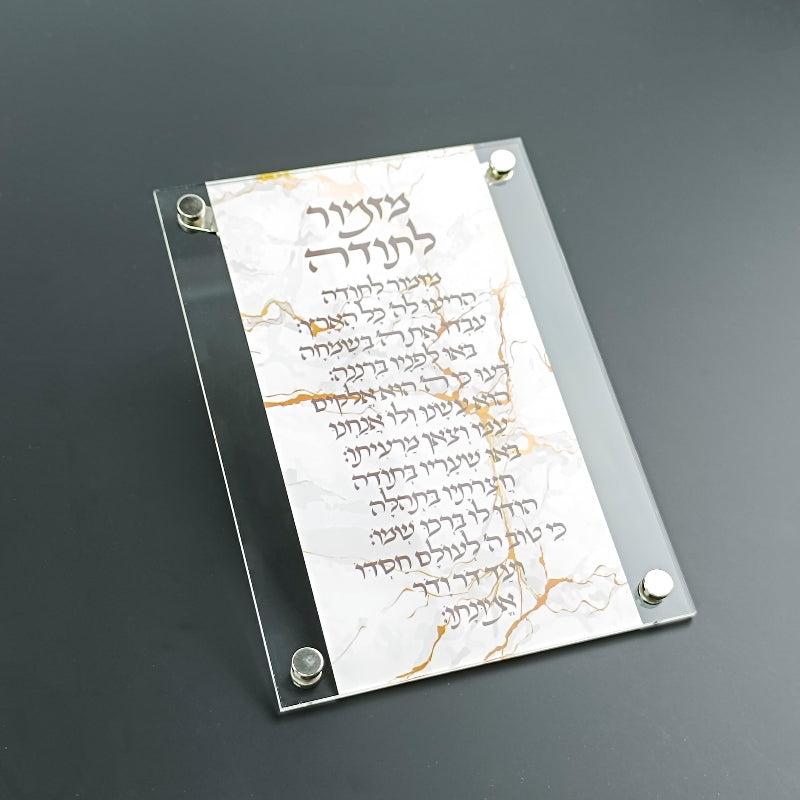 מזמור
לתודה
מִזְמוֹר לְתוֹדָה
הָרִיעוּ לַה' כָּל הָאָרֶץ:
עִבְדוּ אֶת ה' בְּשִׂמְחָה
בֹּאוּ לְפָנָיו בִּרְנָנָה:
דְּעוּ כִּי ה' הוּא אֱלֹקִים
הוּא עָשָׂנוּ וְלוֹ אֲנַחְנוּ
עַמּוֹ וְצֹאן מַרְעִיתוֹ:
בֹּאוּ שְׁעָרָיו בְּתוֹדָה
חֲצֵרֹתָיו בִּתְהִלָּה
הוֹדוּ לוֹ בָּרְכוּ שְׁמוֹ:
כִּי טוֹב ה' לְעוֹלָם חַסְדּוֹ
וְעַד דֹּר וָדֹר
אֱמוּנָתוֹ: